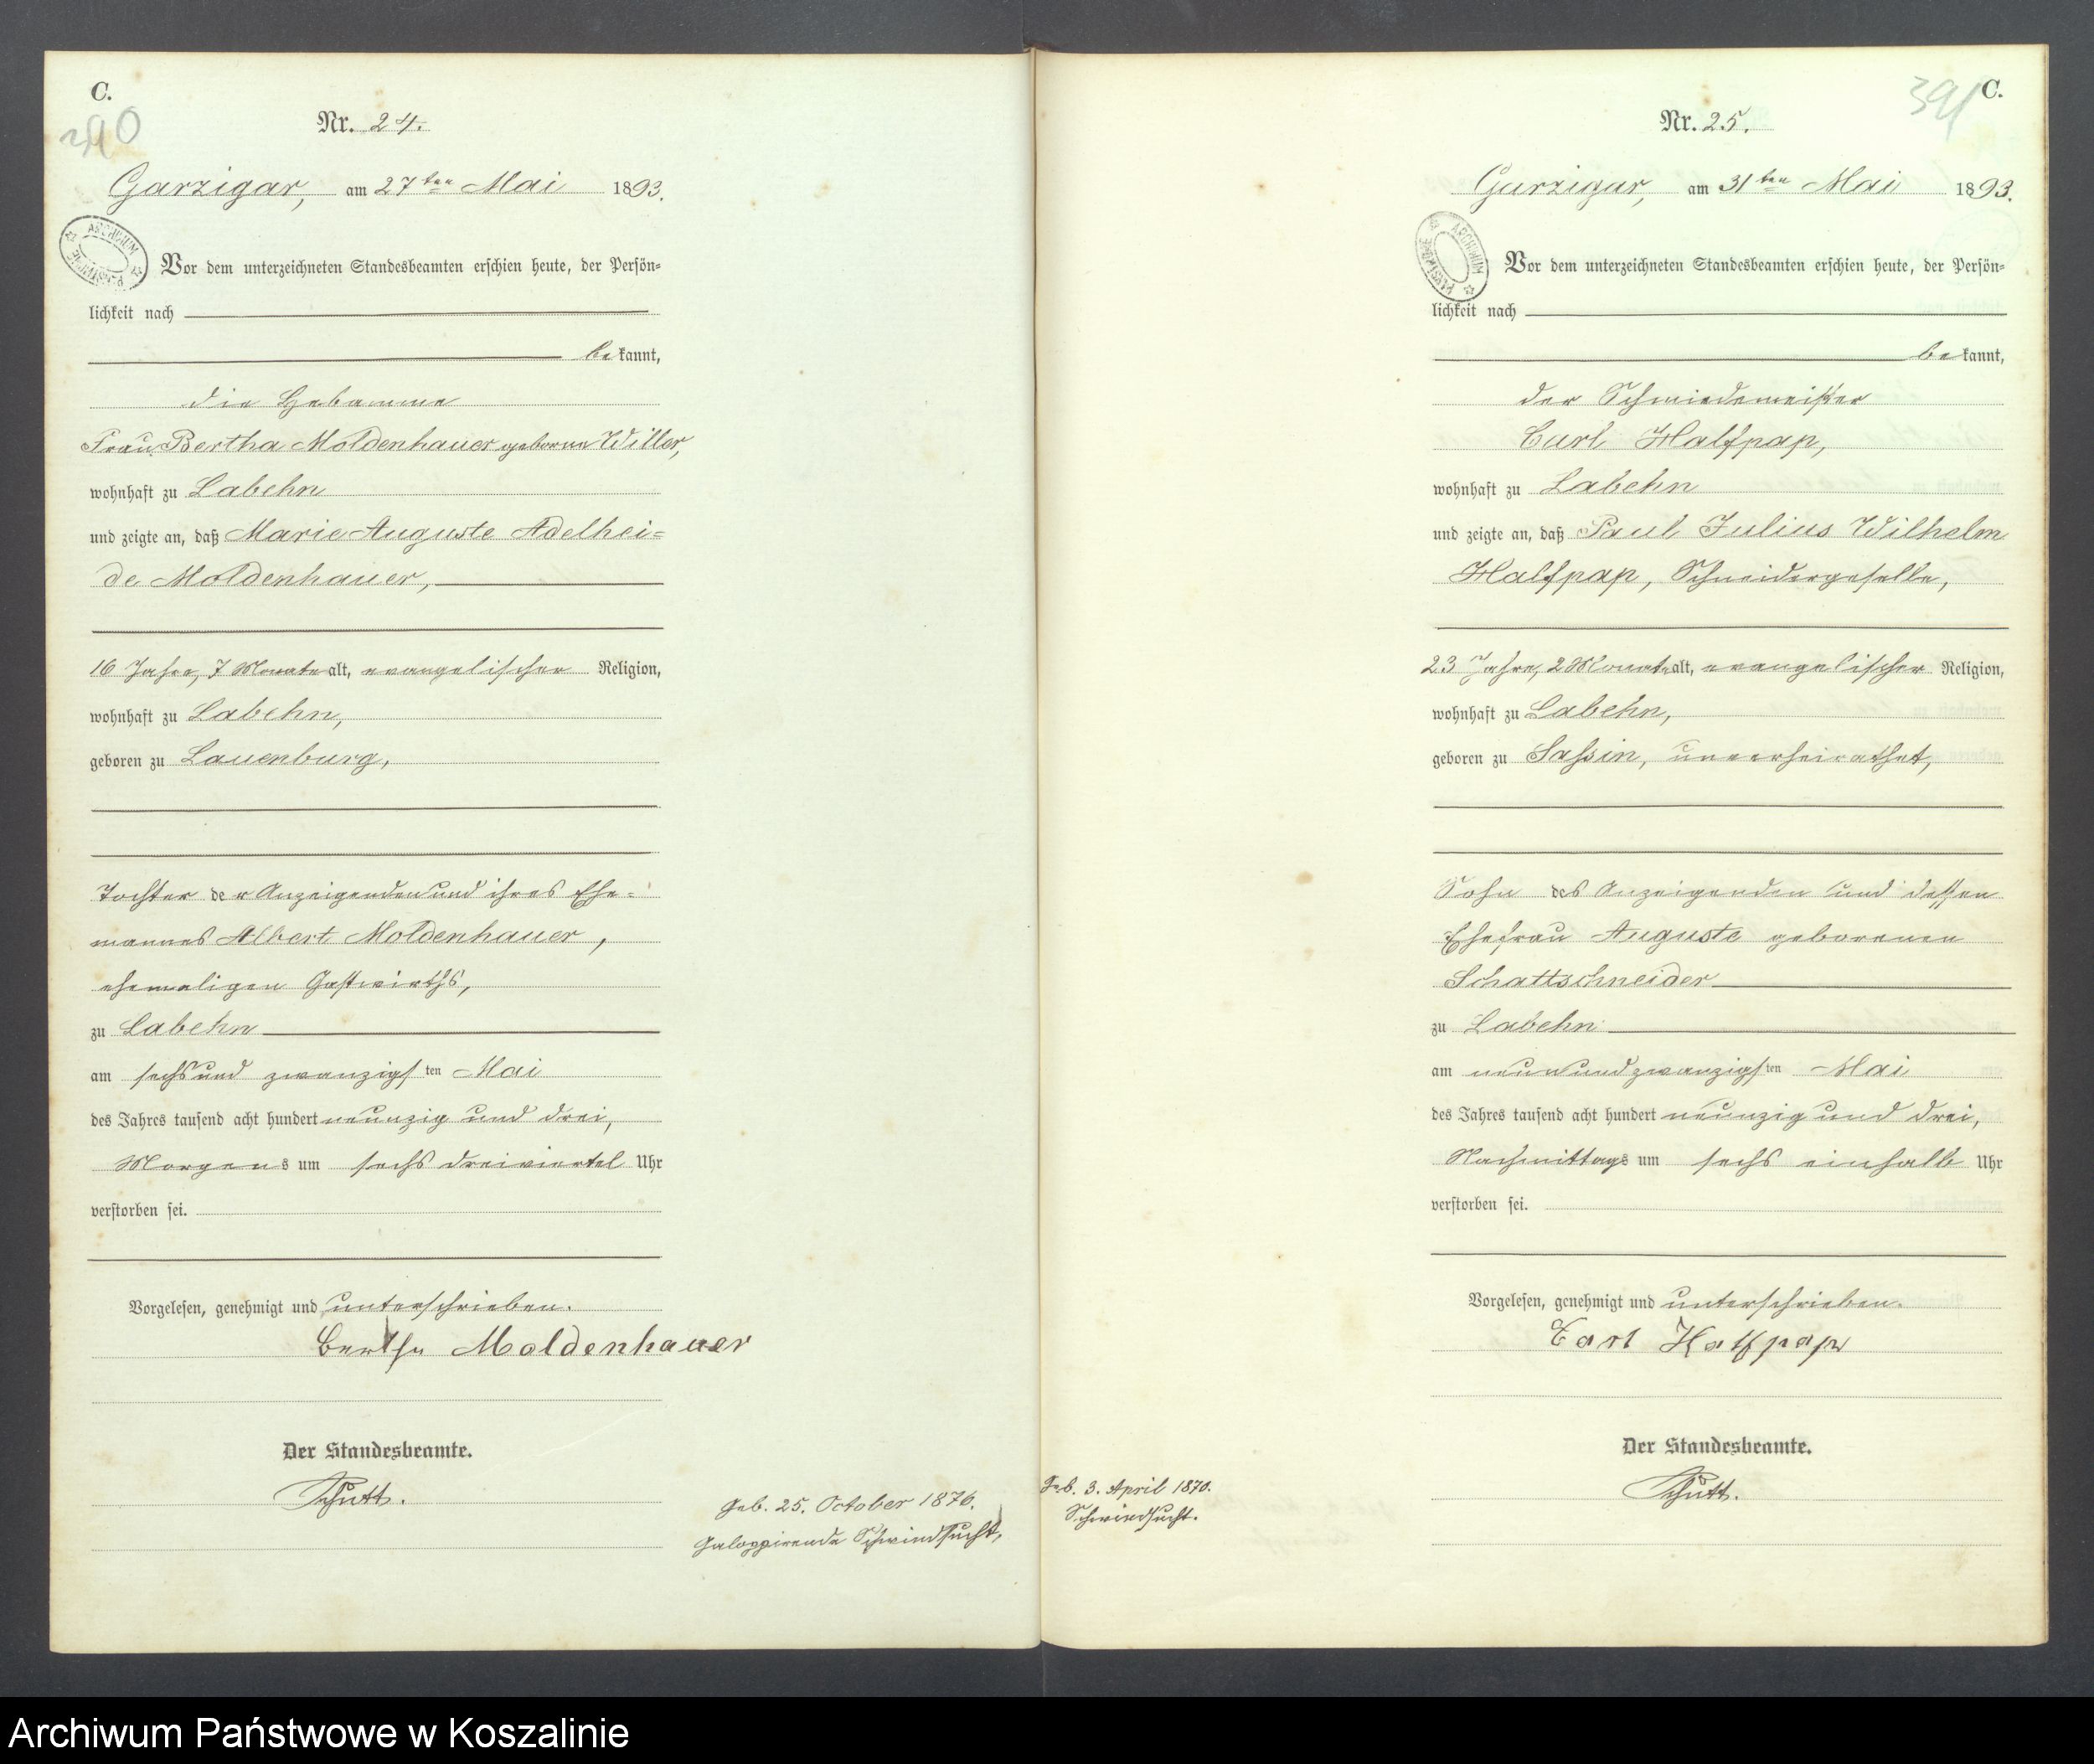 C.
390
Nr. 24.
Garzigar, am 27ten Mai 1893.
ARCHIWUM PAŃSTWOWE
Vor dem unterzeichneten Standesbeamten erschien heute, der Persön-
lichkeit nach
bekannt,
die Hebamme
Frau Bertha Moldenhauer geborne Witter,
wohnhaft zu Labehn
und zeigte an, daß Marie Auguste Adelhei=
de Moldenhauer,
16 Jahre, 7 Monate alt, evangelischer Religion,
wohnhaft zu Labehn,
geboren zu Lauenburg,
Tochter der Anzeigenden und ihres Ehe=
mannes Albert Moldenhauer,
ehemaligen Gastwirths,
zu Labehn
am sechsundzwanzigsten Mai
des Jahres tausend acht hundert neunzig und drei,
Morgens um sechs dreiviertel Uhr
verstorben sei.
Vorgelesen, genehmigt und unterschrieben.
Bertha Moldenhauer
Der Standesbeamte.
Schütt.
Geb. 25. October 1876.
Galoppirende Schwindsucht,
C.
391
Nr. 25.
Garzigar, am 31ten Mai 1893.
ARCHIWUM PAŃSTWOWE
Vor dem unterzeichneten Standesbeamten erschien heute, der Persön-
lichkeit nach
bekannt,
der Schmiedemeister
Carl Halfpap,
wohnhaft zu Labehn
und zeigte an, daß Paul Julius Wilhelm
Halfpap, Schneidergeselle,
23 Jahre, 2 Monate alt, evangelischer Religion,
wohnhaft zu Labehn,
geboren zu Sassin, unverheirathet,
Sohn des Anzeigenden und dessen
Ehefrau Auguste geborenen
Schattschneider
zu Labehn
am neunundzwanzigsten Mai
des Jahres tausend acht hundert neunzig und drei,
Nachmittags um sechs einhalb Uhr
verstorben sei.
Vorgelesen, genehmigt und unterschrieben.
Carl Halfpap
Der Standesbeamte.
Schütt.
Geb. 3. April 1870.
Schwindsucht.
Archiwum Państwowe w Koszalinie